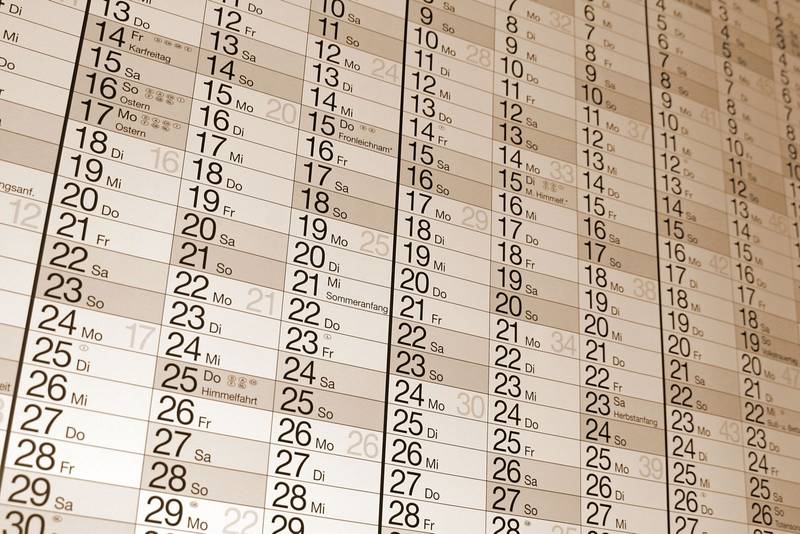 Di
Do
ngsanf.
12
eit
13 Do
14 Fr
Karfreitag
15 Sa
16 So
Ostern
17 Mo
Ostern
18 Di 16
19 Mi
20 Do
21 Fr
22 Sa
23 So
24 Mo 17
25 Di
26 Mi
27 Do
28 Fr
29 Sa
30
12 Fr
13 Sa
14 So
15 Mo 20
16 Di
17 Mi
18 Do
19 Fr
20 Sa
21 So
22 Mo 21
23 Di
24 Mi
25 Do
Himmelfahrt
26 Fr
27 Sa
28 So
29 Mo 22
10 Sa
11 So
12 Mo 24
13 Di
14 Mi
15 Do
Fronleichnam*
16 Fr
17 Sa
18 So
19 Mo 25
20 Di
21 Mi
Sommeranfang
22 Do
23 Fr
24 Sa
25 So
26 Mo 26
27 Di
28 Mi
29
9 So
10 Mo 28
11 Di
12 Mi
13 Do
14 Fr
15 Sa
16 So
17 Mo 29
18 Di
19 Mi
20 Do
21 Fr
22 Sa
23 So
24 Mo 30
25 Di
26 Mi
27 Do
28 Fr
7 Mo 32
8 Di
9 Mi
10 Do
11 Fr
12 Sa
13 So
14 Mo 33
15 Di
M. Himmelf.*
16 Mi
17 Do
18 Fr
19 Sa
20 So
21 Mo 34
22 Di
23 Mi
24 Do
25 Fr
26 Sa
27 So
28
6 Mi
7 Do
8 Fr
9 Sa
10 So
11 Mo 37
12 Di
13 Mi
14 Do
15 Fr
16 Sa
17 So
18 Mo 38
19 Di
20 Mi
21 Do
22 Fr
23 Sa
Herbstanfang
24 So
25 Mo 39
26 Di
27 Mi
5 Do
6 Fr
7 Sa
8 So
9 Mo 41
10 Di
11 Mi
12 Do
13 Fr
14 Sa
15 So
16 Mo 42
17 Di
18 Mi
19 Do
20 Fr
21 Sa
22 So
23 Mo 43
24 Di
25 Mi
26 Do
27
4 Sa
5 So
6 Mo
7 Di
8 Mi
9 Do
10 Fr
11 Sa
12 So
13 Mo 46
14 Di
15 Mi
16 Do
17 Fr
18 Sa
19 So
20 Mo 47
21 Di
22 Mi
23 Do
24 Fr
25 Sa
26 So